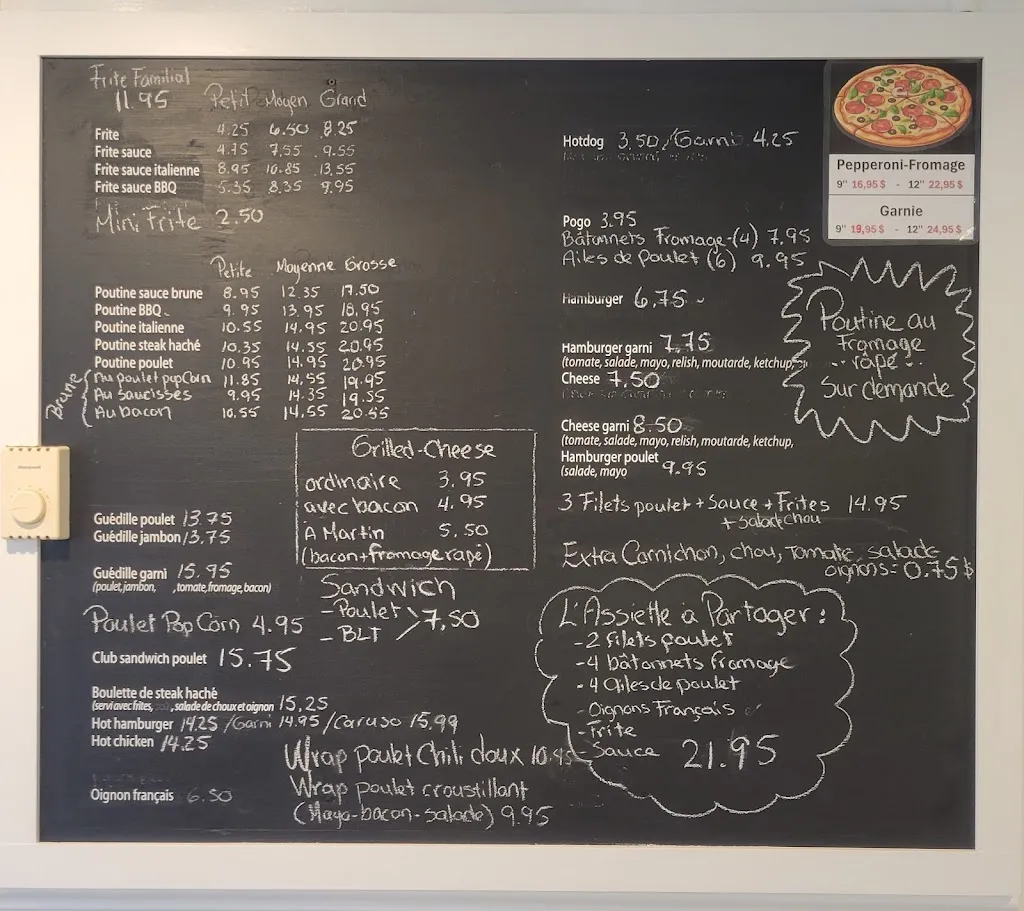 Frite Familial
11.95
Petit Moyen Grand
Frite 4.25 6.50 8.25
Frite sauce 4.75 7.55 9.55
Frite sauce italienne 8.95 10.85 13.55
Frite sauce BBQ 5.35 8.35 9.95
Mini Frite 2.50
Petite Moyenne Grosse
Poutine sauce brune 8.95 12.35 17.50
Poutine BBQ 9.95 13.95 18.95
Poutine italienne 10.55 14.95 20.95
Poutine steak haché 10.35 14.55 20.95
Poutine poulet 10.95 14.95 20.95
Brune
Au poulet pop Corn 11.85 14.55 19.95
Au Saucisses 9.95 14.35 19.55
Au bacon 10.55 14.55 20.55
Grilled-Cheese
ordinaire 3.95
avec bacon 4.95
À Martin 5.50
(bacon+fromage rapé)
Guédille poulet 13.75
Guédille jambon 13.75
Guédille garni 15.95
(poulet, jambon, , tomate, fromage, bacon)
Sandwich
- Poulet
- BLT
7,50
Poulet Pop Corn 4.95
Club sandwich poulet 15.75
Boulette de steak haché
(servi avec frites, , salade de choux et oignon 15,25
Hot hamburger 14.25 /Garni 14.95 /Caruso 15,99
Hot chicken 14.25
Wrap poulet Chili doux
Wrap poulet croustillant
(Mayo-bacon-salade) 9.95
Oignon français 6.50
Hotdog 3,50 /Garni 4.25
Pogo 3.95
Bâtonnets Fromage-(4) 7.95
Ailes de Poulet (6) 9.95
Hamburger 6,75
Hamburger garni 7,75
(tomate, salade, mayo, relish, moutarde, ketchup,
Cheese 7.50
Cheese garni 8.50
(tomate, salade, mayo, relish, moutarde, ketchup,
Hamburger poulet
(salade, mayo 9.95
3 Filets poulet + Sauce + Frites 14.95
+ salade chou
Extra Cornichon, chou, Tomate, salade
oignons= 0.75$
L'Assiette à Partager:
- 2 filets poulet
- 4 bâtonnets fromage
- 4 Ailes de poulet
- Oignons Français
- Frite
- Sauce 21.95
Pepperoni-Fromage
9" 16,95$ - 12" 22,95$
Garnie
9" 19,95$ - 12" 24,95$
Poutine au
Fromage
rapé
Sur demande